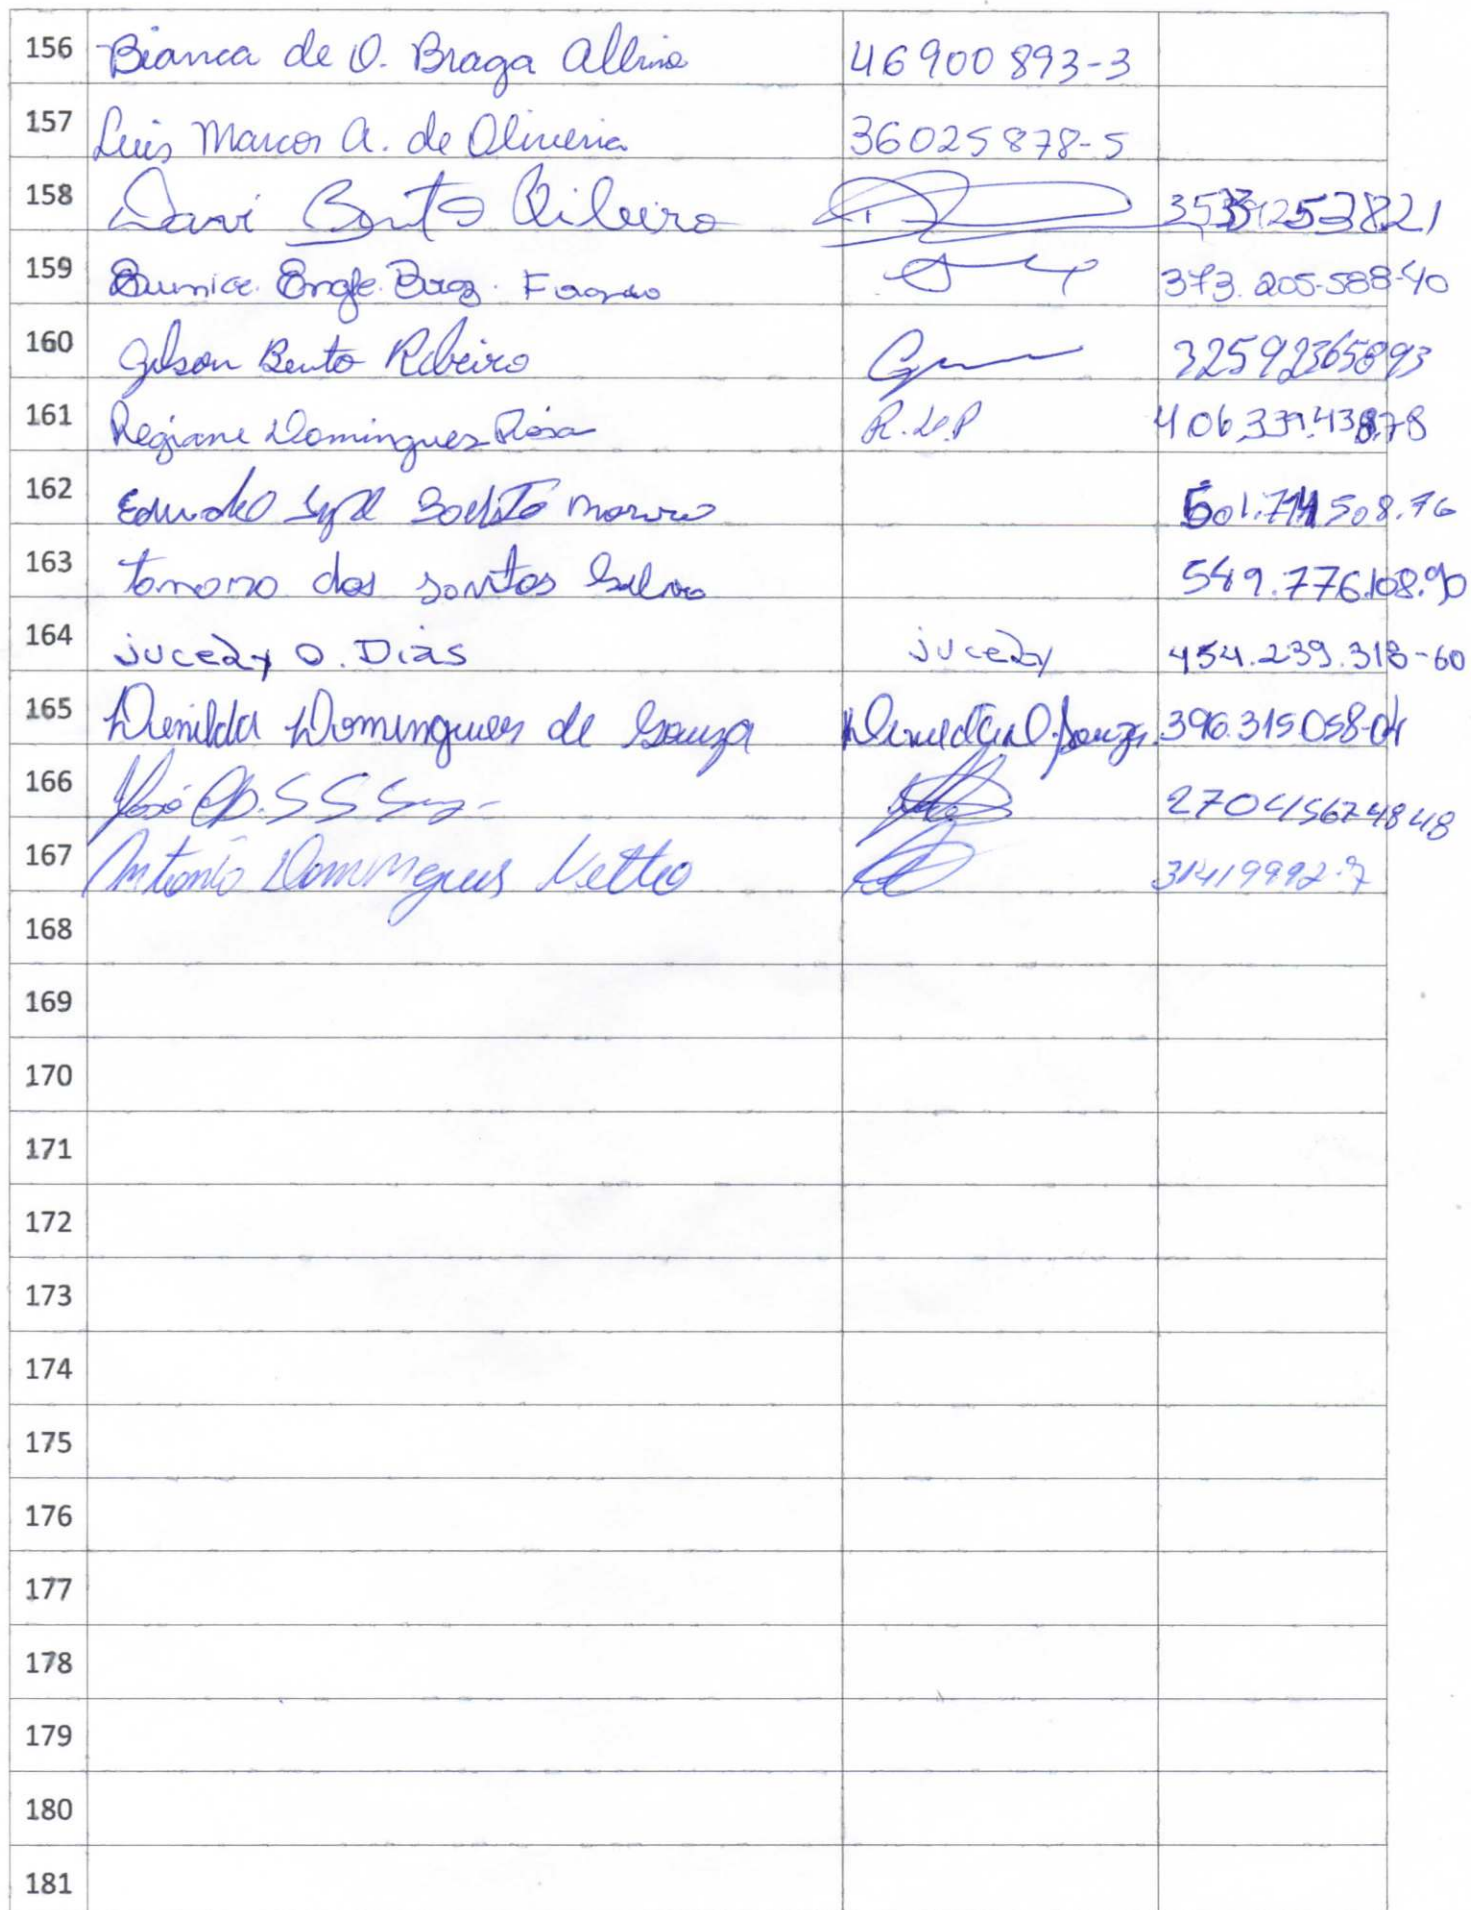 156 Bianca de O. Braga Albino 46900893-3
157 Luis Marcos A. de Oliveira 36025878-5
158 Davi Bento Ribeiro
159 Eunice 373.205-588-40
160 Gilson Bento Ribeiro 32592365893
161 Regiane Domingues Rosa R.D.P
162 Eduardo
163 tamara dos santos Silva 549.776.108.90
164 jucedy O. Dias jucedy 454.239.318-60
165 Denilda Domingues de Souza 396.315.058-04
166 José 27045674848
167 Antonio Domingues Netto 31419992-7
168
169
170
171
172
173
174
175
176
177
178
179
180
181